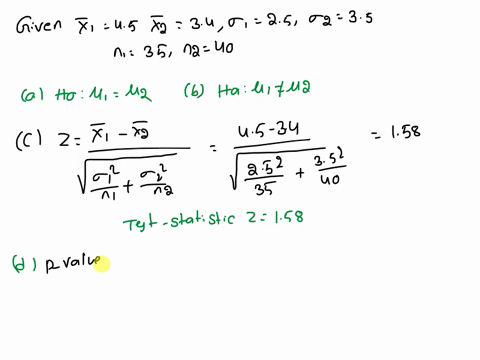 Given x̄1 = 4.5 x̄2 = 3.4, σ1 = 2.5, σ2 = 3.5
n1 = 35, n2 = 40
(a) Ho: μ1 = μ2 (b) Ha: μ1 ≠ μ2
(C) Z = (x̄1 - x̄2) / √(σ1²/n1 + σ2²/n2) = (4.5 - 34) / √(2.5²/35 + 3.5²/40) = 1.58
Test-statistic Z = 1.58
(d) p value